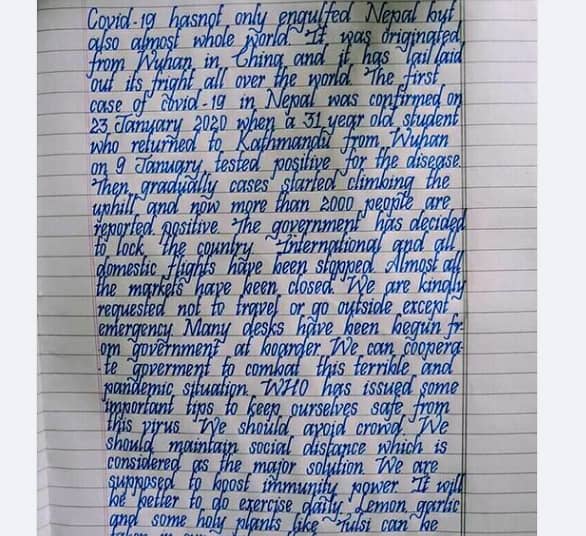 Covid-19 hasnot only engulfed Nepal but
also almost whole world. It was originated
from Wuhan in China and it has laid
out its fright all over the world. The first
case of Covid-19 in Nepal was confirmed on
23 January 2020 when a 31 year old student
who returned to Kathmandu from Wuhan
on 9 January, tested positive for the disease.
Then gradually cases started climbing the
uphill and now more than 2000 people are
reported positive. The government has decided
to lock the country. International and all
domestic flights have been stopped. Almost all
the markets have been closed. We are kindly
requested not to travel or go outside except
emergency. Many desks have been begun fr-
om government at boarder. We can coopera-
-te goverment to combat this terrible and
pandemic situation. WHO has issued some
important tips to keep ourselves safe from
this virus. We should avoid crowd. We
should maintain social distance which is
considered as the major solution. We are
supposed to boost immunity power. It will
be better to do exercise daily. Lemon, garlic
and some holy plants like Tulsi can be